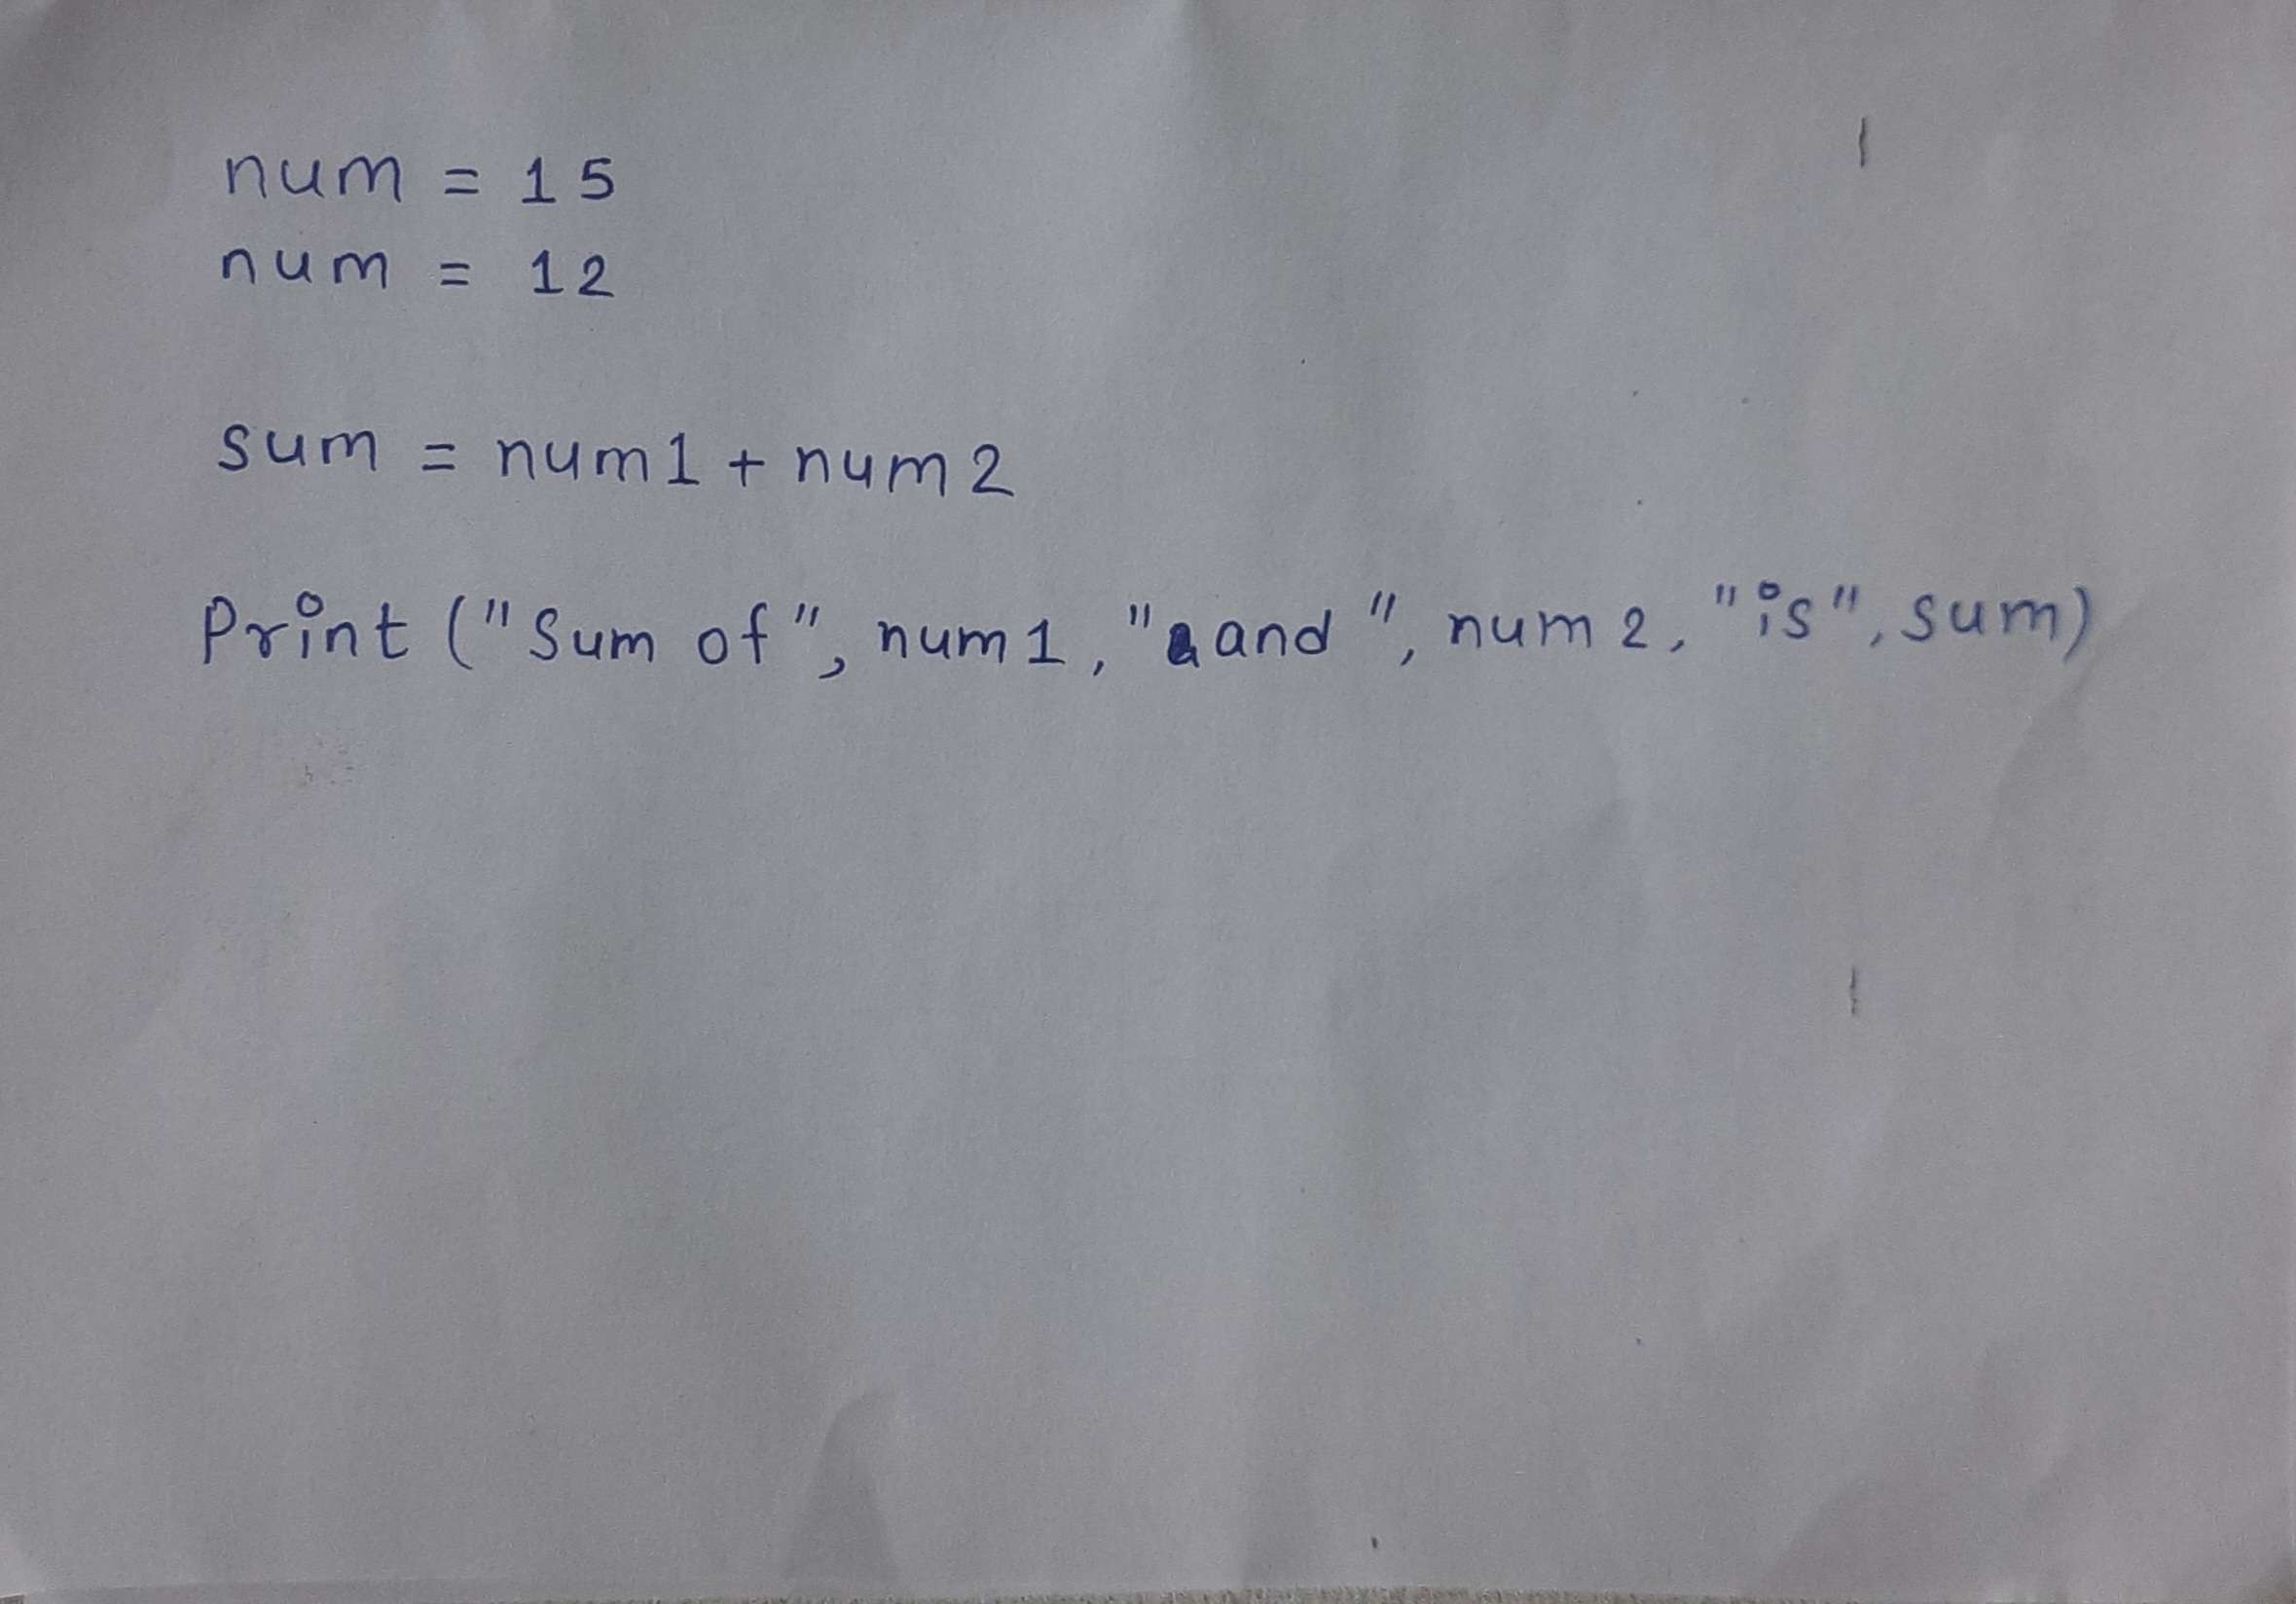 num = 15
num = 12
sum = num1 + num2
Print ("Sum of", num1, "and", num2, "is", sum)